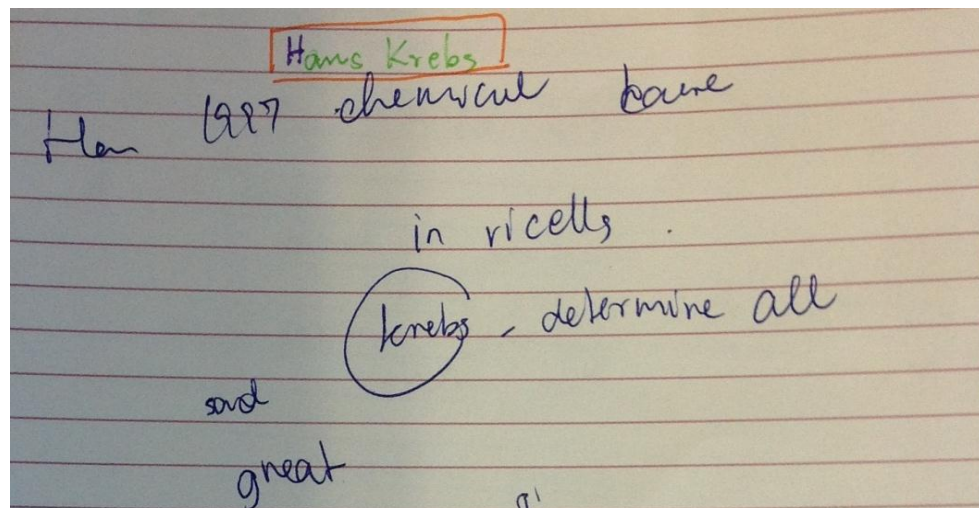 Hans Krebs
chemical
in ricells.
krebs - determine all
said
great